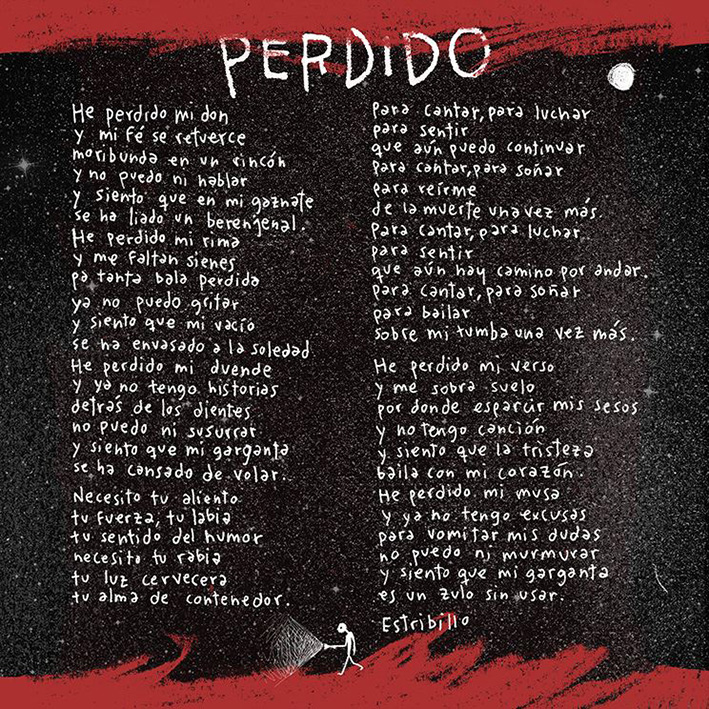 PERDIDO
He perdido mi don
y mi fé se retuerce
moribunda en un rincón
y no puedo ni hablar
y siento que en mi gaznate
se ha liado un berenjenal.
He perdido mi rima
y me faltan sienes
pa tanta bala perdida
ya no puedo gritar
y siento que mi vacío
se ha envasado a la soledad
He perdido mi duende
y ya no tengo historias
detrás de los dientes
no puedo ni susurrar
y siento que mi garganta
se ha cansado de volar.
Necesito tu aliento
tu fuerza, tu labia
tu sentido del humor
necesito tu rabia
tu luz cervecera
tu alma de contenedor.
Para cantar, para luchar
para sentir
que aún puedo continuar
para cantar, para soñar
para reírme
de la muerte una vez más.
Para cantar, para luchar
para sentir
que aún hay camino por andar.
para cantar, para soñar
para bailar
sobre mi tumba una vez más.
He perdido mi verso
y me sobra suelo
por donde esparcir mis sesos
y no tengo canción
y siento que la tristeza
baila con mi corazón.
He perdido mi musa
y ya no tengo excusas
para vomitar mis dudas
no puedo ni murmurar
y siento que mi garganta
es un zulo sin usar.
Estribillo